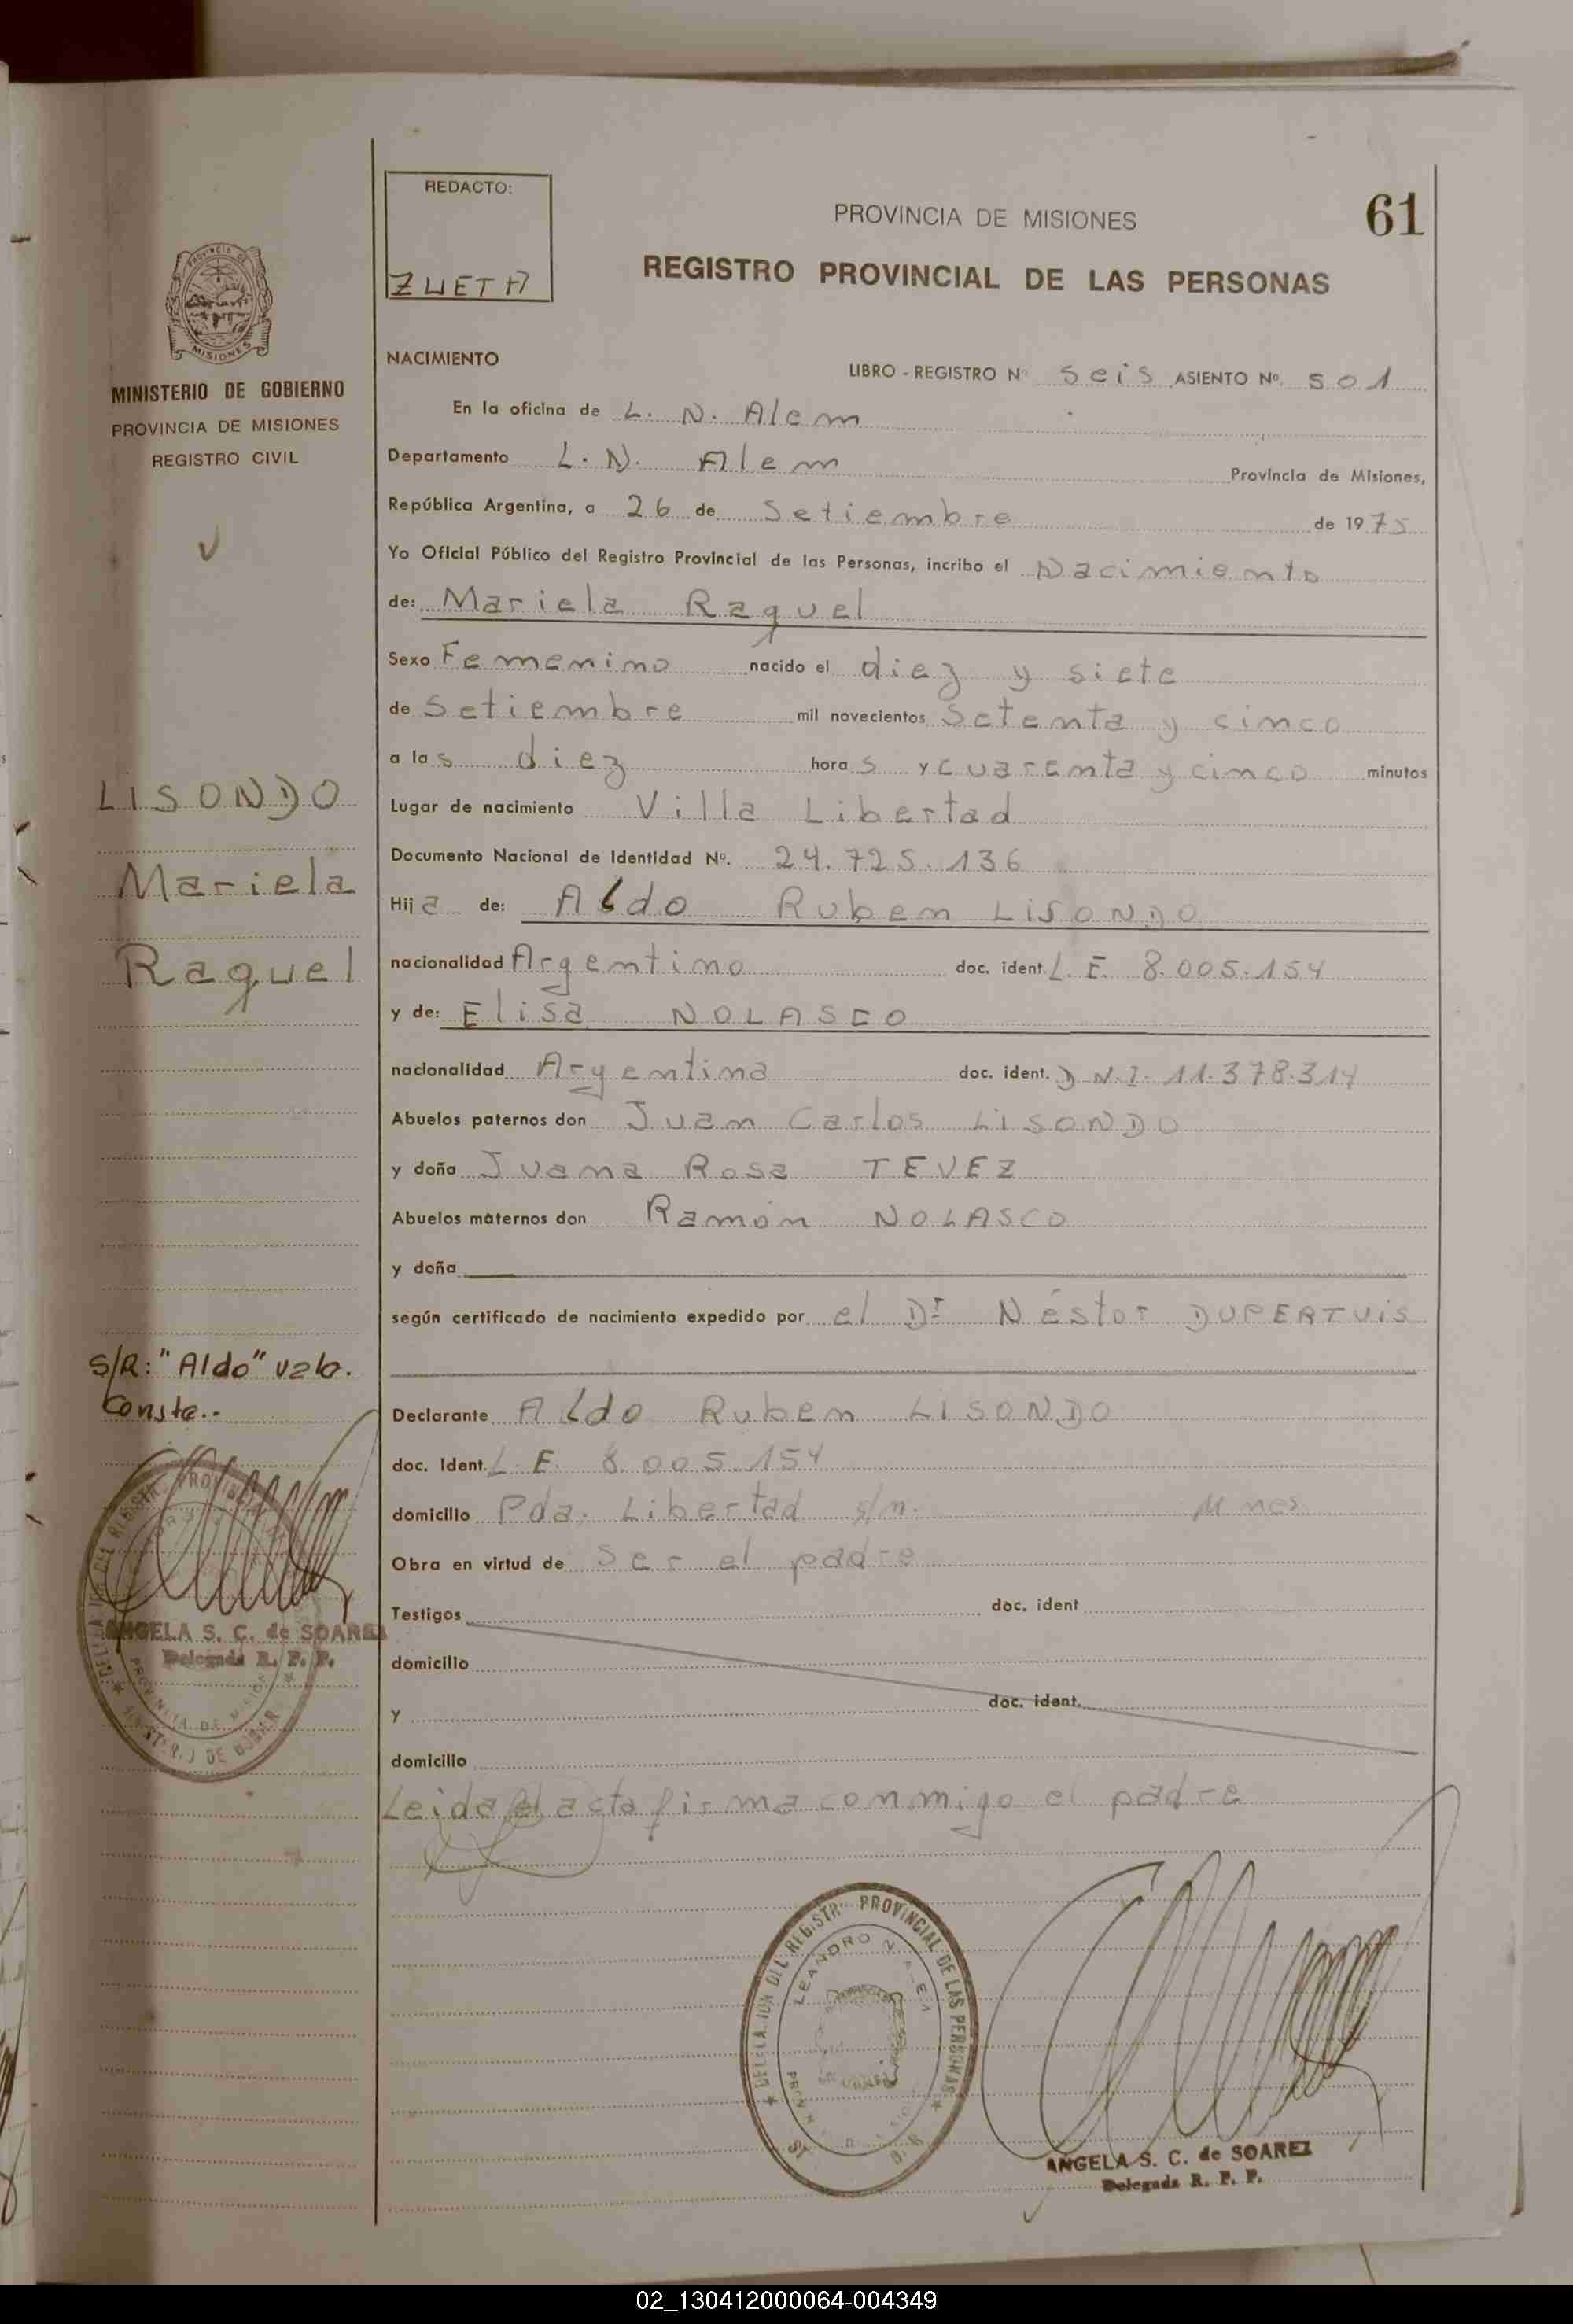 REDACTO:
ZUETA
PROVINCIA DE MISIONES
61
REGISTRO PROVINCIAL DE LAS PERSONAS
PROVINCIA DE
MISIONES
MINISTERIO DE GOBIERNO
PROVINCIA DE MISIONES
REGISTRO CIVIL
NACIMIENTO
LIBRO - REGISTRO Nº seis ASIENTO Nº. 501
En la oficina de L. N. Alem
Departamento L. N. Alem Provincia de Misiones,
República Argentina, a 26 de Setiembre de 1975
Yo Oficial Público del Registro Provincial de las Personas, incribo el Nacimiento
de: Mariela Raquel
Sexo Femenino nacido el diez y siete
de Setiembre mil novecientos Setenta y cinco
a las diez horas y cuarenta y cinco minutos
LISONDO
Mariela
Raquel
Lugar de nacimiento Villa Libertad
Documento Nacional de Identidad Nº. 24.725.136
Hija de: Aldo Ruben LISONDO
nacionalidad Argentino doc. ident. L. E. 8.005.154
y de: Elisa NOLASCO
nacionalidad Argentina doc. ident. D.N.I. 11.378.314
Abuelos paternos don Juan Carlos LISONDO
y doña Juana Rosa TEVEZ
Abuelos maternos don Ramón NOLASCO
y doña
según certificado de nacimiento expedido por el Dr Néstor DUPERTUIS
S/R: "Aldo" vale.
Conste.-
Declarante Aldo Ruben LISONDO
doc. Ident. L. E. 8.005.154
domicilio Pda. Libertad s/n. Mnes
Obra en virtud de Ser el padre
Testigos doc. ident
domicilio
y doc. ident.
domicilio
ANGELA S. C. de SOAREZ
Delegada R. P. P.
Leida el acta firma conmigo el padre
DELEGACION DEL REGISTRO PROVINCIAL DE LAS PERSONAS
LEANDRO N. ALEM
ANGELA S. C. de SOAREZ
Delegada R. P. P.
02_130412000064-004349